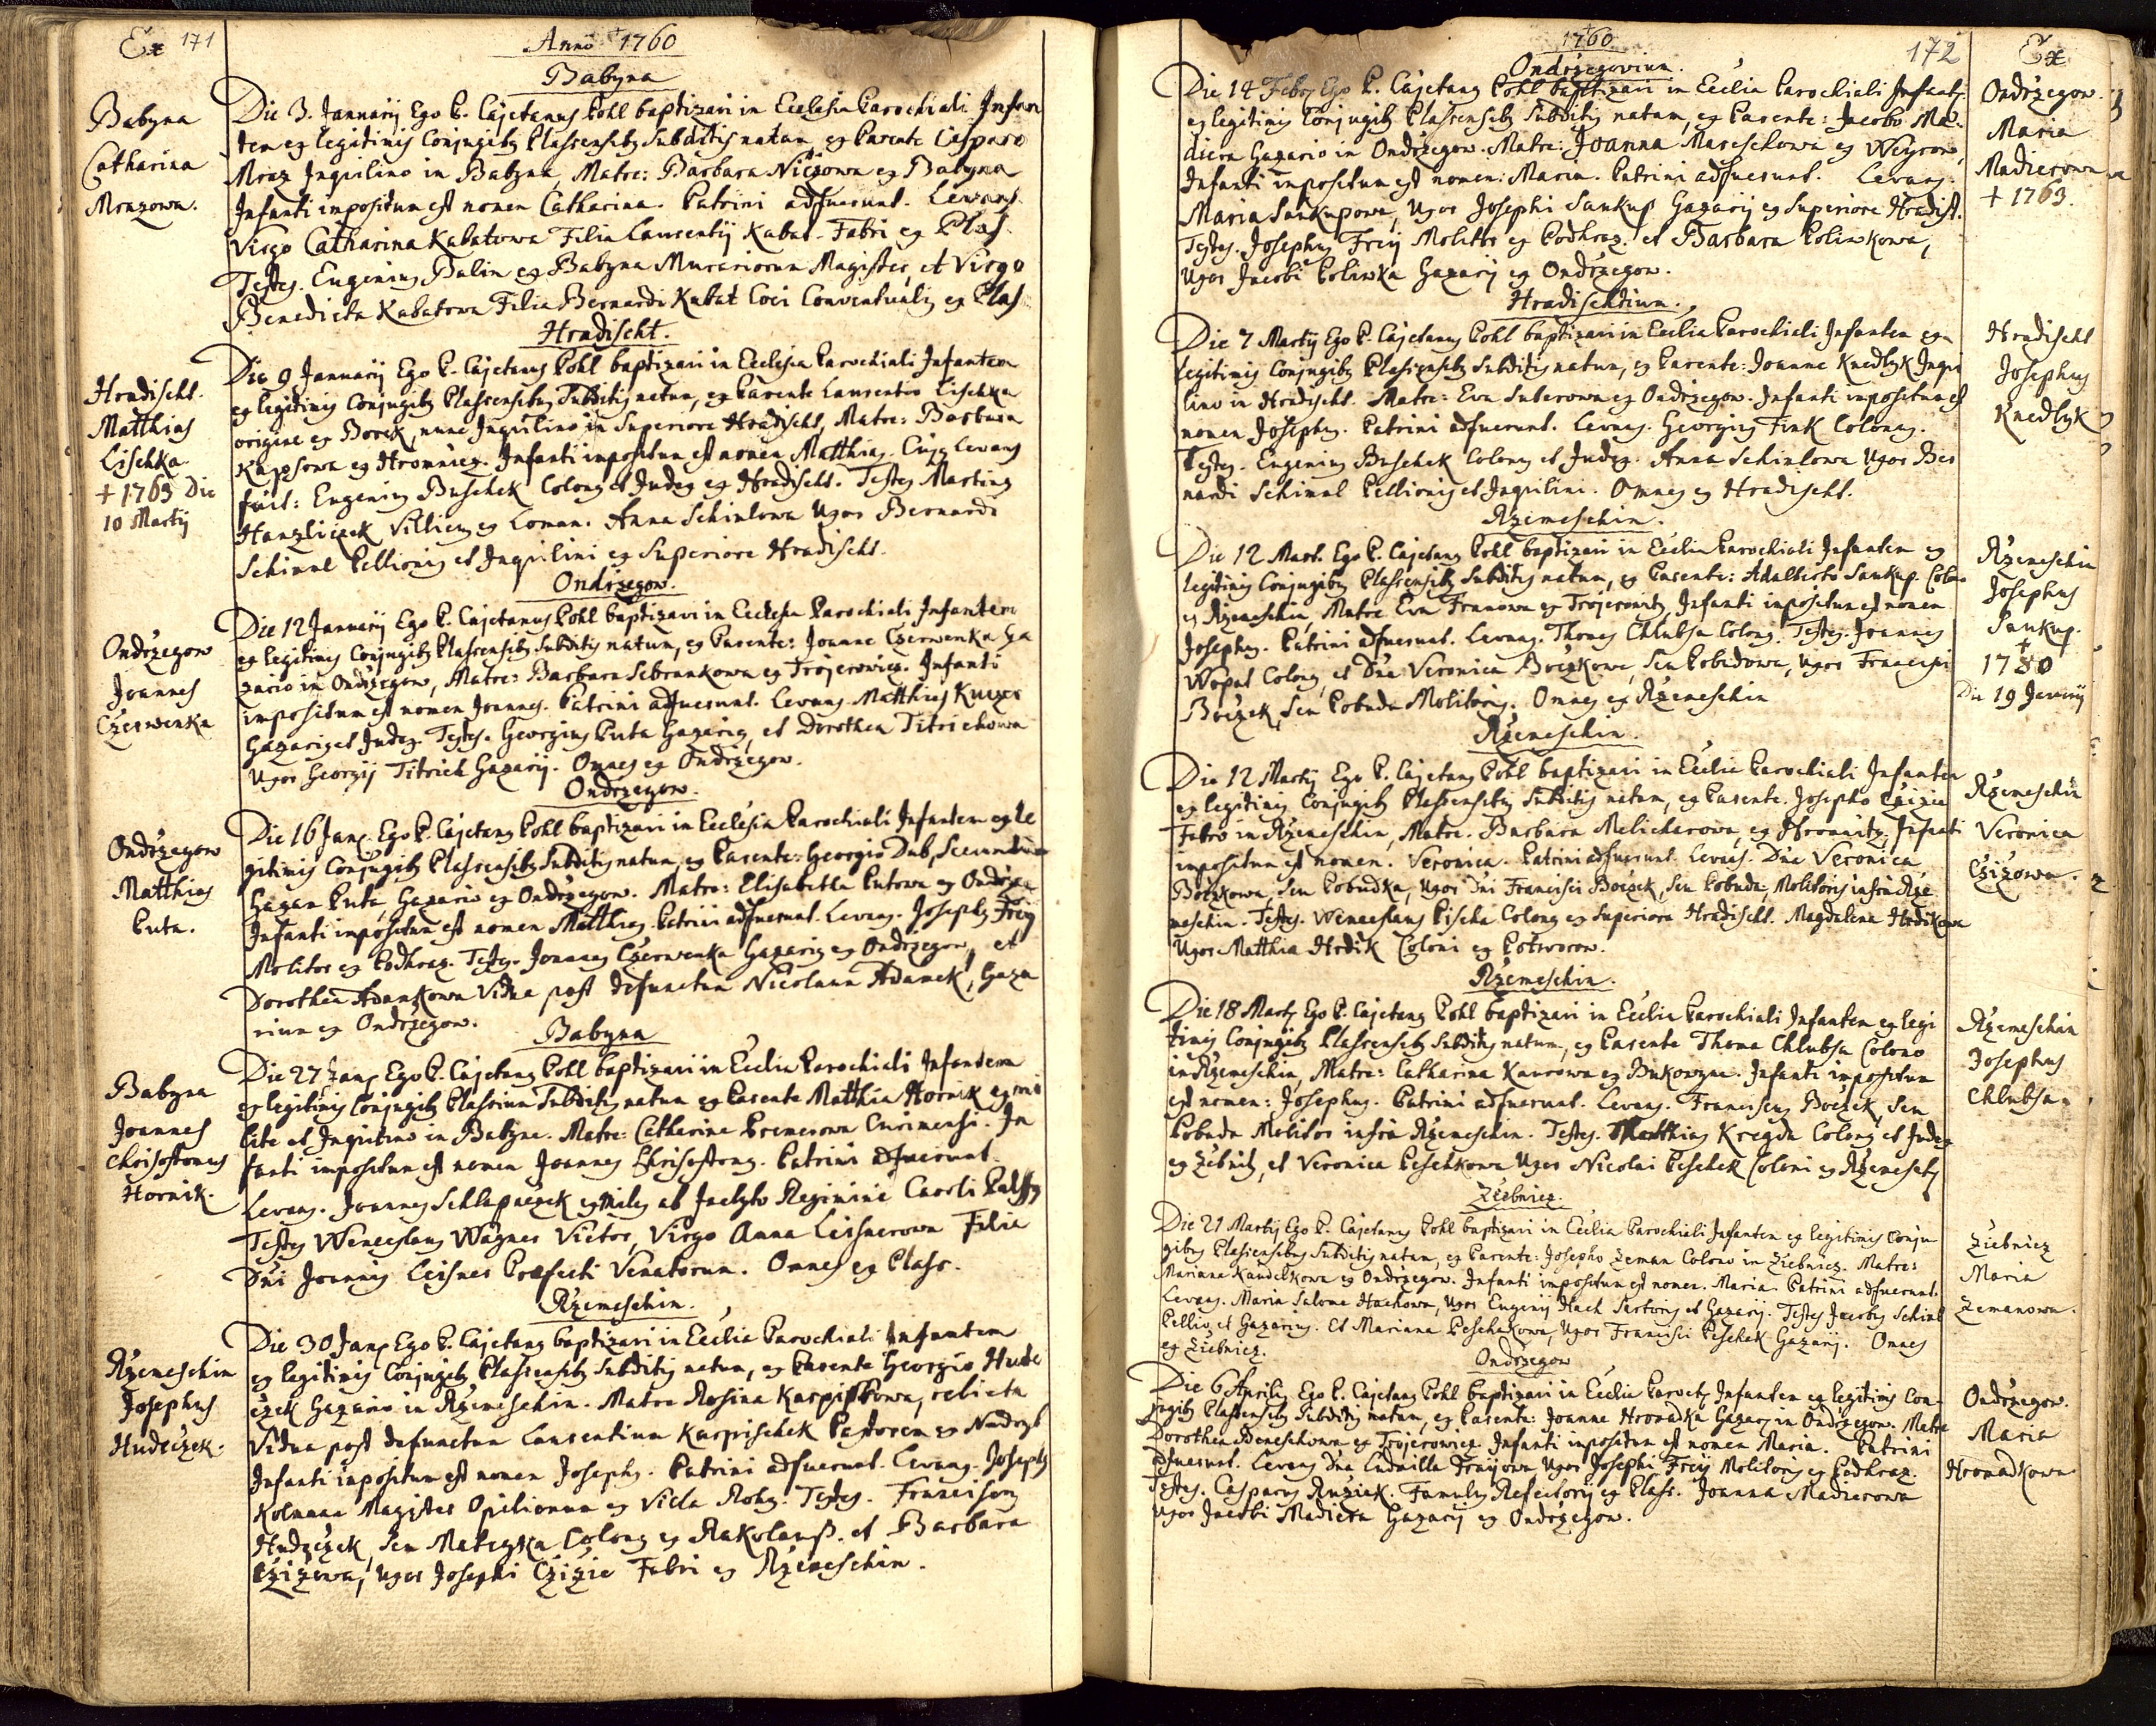 Ex 171
Anno 1760
Babyna
Babyna
Catharina
Mrazowa.
Die 3. Januarij Ego P. Cajetanus Pohl baptizavi in Ecclesia Parochiali Infan
tem ex legitimis Conjugibq Plassensibq Subditis natam, ex Parente Casparo
Mraz Inquilino in Babyna, Matre: Barbara Niczowa ex Babyna
Infanti impositum est nomen Catharina. Patrini adfuerunt. Levans
Virgo Catharina Kabatowa Filia Laurentij Kabat Fabri ex Plas
Testes. Eugenius Balin ex Babyna Murariorum Magister, et Virgo
Benedicta Kabatowa Filia Bernardi Kabat Coci Conventualis ex Plas
Hradischt.
Hradischt.
Matthias
Lischka
+ 1763 Die
10 Martij
Die 9 Januarij Ego P. Cajetanus Pohl baptizavi in Ecclesia Parochiali Infantem
ex legitimis Conjugibq Plassensibq Subditis natum, ex Parente Laurentio Lischka
origine ex Borek, nunc Inquilino in Superiore Hradischt, Matre: Barbara
Kapsowa ex Hromnicz. Infanti impositum est nomen Matthias. Cujus Levans
fuit: Eugenius Buschek Colonus et Judex ex Hradischt. Testes Martinus
Hanzliczek Villicus ex Loman. Anna Schimlowa Uxor Bernardi
Schimal Pellionis et Inquilini ex Superiore Hradischt.
Ondrzegow.
Ondrzegow
Joannes
Czerwenka
Die 12 Januarij Ego P. Cajetanus Pohl baptizavi in Ecclesia Parochiali Infantem
ex legitimis Conjugibq Plassensibq Subditis natum, ex Parente: Joanne Czerwenka Ga
zario in Ondrzegow, Matre: Barbara Sebrankowa ex Trojerowicz. Infanti
impositum est nomen Joannes. Patrini adfuerunt. Levans Matthias
Gazarius et Judex. Testes. Georgius Puta Gazarius, et Dorothea Titrichowa
Uxor Georgij Titrich Gazarij. Omnes ex Ondrzegow.
Ondrzegow.
Ondrzegow
Matthias
Puta.
Die 16 Janrij Ego P. Cajetanus Pohl baptizavi in Ecclesia Parochiali Infantem ex le
gitimis Conjugibq Plassensibq Subditis natum, ex Parente: Georgio Dub, Secundum
Gazar Puta, Gazario ex Ondrzegow. Matre: Elisabetha Putowa ex Ondrzeg
Infanti impositum est nomen Matthias. Patrini adfuerunt. Levans. Josephus Freij
Molitor ex Podhraz. Testes. Joannes Czerwenka Gazarius ex Ondrzegow, et
Dorothea Adamkowa Vidua post defunctum Nicolaum Adamek, Gaza
rium ex Ondrzegow.
Babyna
Babyna
Joannes
Chrisostomus
Hornik.
Die 27 Janrij Ego P. Cajetanus Pohl baptizavi in Ecclia Parochiali Infantem
ex legitimis Conjugibq Plassium Subditis natum ex Parente Matthia Hornik ex mi
lite et Inquilino in Babyna. Matre: Catharina Premerowa Curimensi. In
fanti impositum est nomen Joannes Chrisostomus. Patrini adfuerunt.
Levans. Joannes Schlapaczek exmiles ab Inclyto Regimine Caroli Palffy
Testes Wenceslaus Wagner Vietor, Virgo Anna Leisnerowa Filia
Dni Joannis Leisner Praefecti Venatorum. Omnes ex Plass.
Rzemeschin.
Rzemeschin
Josephus
Hudeczek.
Die 30 Janrij Ego P. Cajetanus baptizavi in Ecclia Parochiali Infantem
ex legitimis Conjugibq Plassensibq Subditis natum, ex Parente Georgio Hude
czek Gazario in Rzemeschin. Matre Rosina Karpischkowa, relicta
Vidua post defunctum Laurentium Karpischek Pastorem ex Nadryb
Infanti impositum est nomen Josephus. Patrini adfuerunt. Levans. Josephus
Kolmann Magister Opilionum ex Villa Rohy. Testes. Franciscus
Hudeczek, seu Mateyka Colonus ex Rakolaus. et Barbara
Czizowa, Uxor Josephi Czizie Fabri ex Rzemeschin.
1760
172
Ex
Ondrzegovium.
Die 14 Febrij Ego P. Cajetanus Pohl baptizavi in Ecclia Parochiali Infantem
ex legitimis Conjugibq Plassensibq Subditis natam, ex Parente: Jacobo Ma
diera Gazario in Ondrzegow. Matre: Joanna Mareschowa ex Weyrow,
Infanti impositum est nomen: Maria. Patrini adfuerunt. Levans:
Maria Saukupowa, Uxor Josephi Saukup Gazarij ex Superiore Hradist.
Testes. Josephus Freij Molitor ex Podhraz. et Barbara Poliwkowa,
Uxor Jacobi Poliwka Gazarij ex Ondrzegow.
Ondrzegow.
Maria
Madierowa
+ 1763.
Hradischtium.
Die 7 Martij Ego P. Cajetanus Pohl baptizavi in Ecclia Parochiali Infantem ex
legitimis Conjugibq Plassensibq Subditis natum, ex Parente: Joanne Knedlyk Inqui
lino in Hradischt. Matre: Eva Suberowa ex Ondrzegow. Infanti impositum est
nomen Josephus. Patrini adfuerunt. Levans. Georgius Fink Colonus.
Testes. Eugenius Buschek Colonus et Judex. Anna Schimlowa Uxor Ber
nardi Schimal Pellionis et Inquilini. Omnes ex Hradischt.
Hradischt
Josephus
Knedlyk
Rzemeschin.
Die 12 Mart. Ego P. Cajetanus Pohl baptizavi in Ecclia Parochiali Infantem ex
legitimis Conjugibq Plassensibq Subditis natum, ex Parente: Adalberto Saukup. Colo
ex Rzemeschin, Matre Eva Franowa ex Trojerowitz, Infanti impositum est nomen
Josephus. Patrini adfuerunt. Levans. Thomas Chlubsa Colonus. Testes. Joannes
Wopat Colonus, et Dna Veronica Boczkowa, seu Pobudowa, Uxor Francisci
Boczek, seu Pobuda Molitoris. Omnes ex Rzemeschin
Rzemeschin
Josephus
Saukup.
+
1780
Die 19 Januarij
Rzemeschin.
Die 12 Martij Ego P. Cajetanus Pohl baptizavi in Ecclia Parochiali Infantem
ex legitimis Conjugibq Plassensibq Subditis natam, ex Parente. Josepho Czizie
Fabro in Rzemeschin, Matre. Barbara Melicharowa, ex Hromnitz, Infanti
impositum est nomen. Veronica. Patrini adfuerunt. Levans. Dna Veronica
Boczkowa, seu Pobudka, Uxor Dni Francisci Boczek, seu Pobuda, Molitoris infra Rze
meschin. Testes. Wenceslaus Pischa Colonus ex Superiore Hradischt. Magdalena Hrdikowa
Uxor Matthia Hrdik Coloni ex Potworow.
Rzemeschin
Veronica
Czizowa.
Rzemeschin.
Die 18 Martij Ego P. Cajetanus Pohl baptizavi in Ecclia Parochiali Infantem ex legi
timis Conjugibq Plassensibq Subditis natum, ex Parente Thoma Chlubsa Colono
in Rzemeschin, Matre: Catharina Kaurowa ex Bukowyna. Infanti impositum
est nomen: Josephus. Patrini adfuerunt. Levans. Franciscus Boczek, seu
Pobuda Molitor infra Rzemeschin. Testes. Matthias Kregda Colonus et Judex
ex Zebnitz, et Veronica Peschkowa Uxor Nicolai Peschek Coloni ex Rzemeschin
Rzemeschin
Josephus
Chlubsa.
Ziebnicz.
Die 21 Martij Ego P. Cajetanus Pohl baptizavi in Ecclia Parochiali Infantem ex legitimis Conju
gibus Plassensibus Subditis natam, ex Parente: Josepho Zeman Colono in Ziebnicz. Matre:
Mariana Kaudelkowa ex Ondrzegow. Infanti impositum est nomen. Maria. Patrini adfuerunt.
Levans. Maria Salome Hachowa, Uxor Eugenij Hach Sartoris et Gazarij. Testes Jacobus Schimal
Pellio, et Gazarius. Et Mariana Peschakowa, Uxor Francisci Peschek Gazarij. Omnes
ex Ziebnicz.
Ziebnicz
Maria
Zemanowa.
Ondrzegow
Die 6 Aprilis Ego P. Cajetanus Pohl baptizavi in Ecclia Paroch. Infantem ex legitimis Con
jugibq Plassensibq Subditis natam, ex Parente: Joanne Hromadka Gazario in Ondrzegow. Matre
Dorothea Beneschowa ex Trojerowicz. Infanti impositum est nomen Maria. Patrini
adfuerunt. Levans Dna Ludmilla Freijowa Uxor Josephi Freij Molitoris ex Podhraz.
Testes. Casparus Ruziek. Famulus Refectorij ex Plass. Joanna Madierowa
Uxor Jacobi Madiera Gazarij ex Ondrzegow.
Ondrzegow.
Maria
Hromadkowa